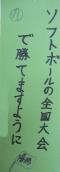 ソフトボールの全国大会
で勝てますように